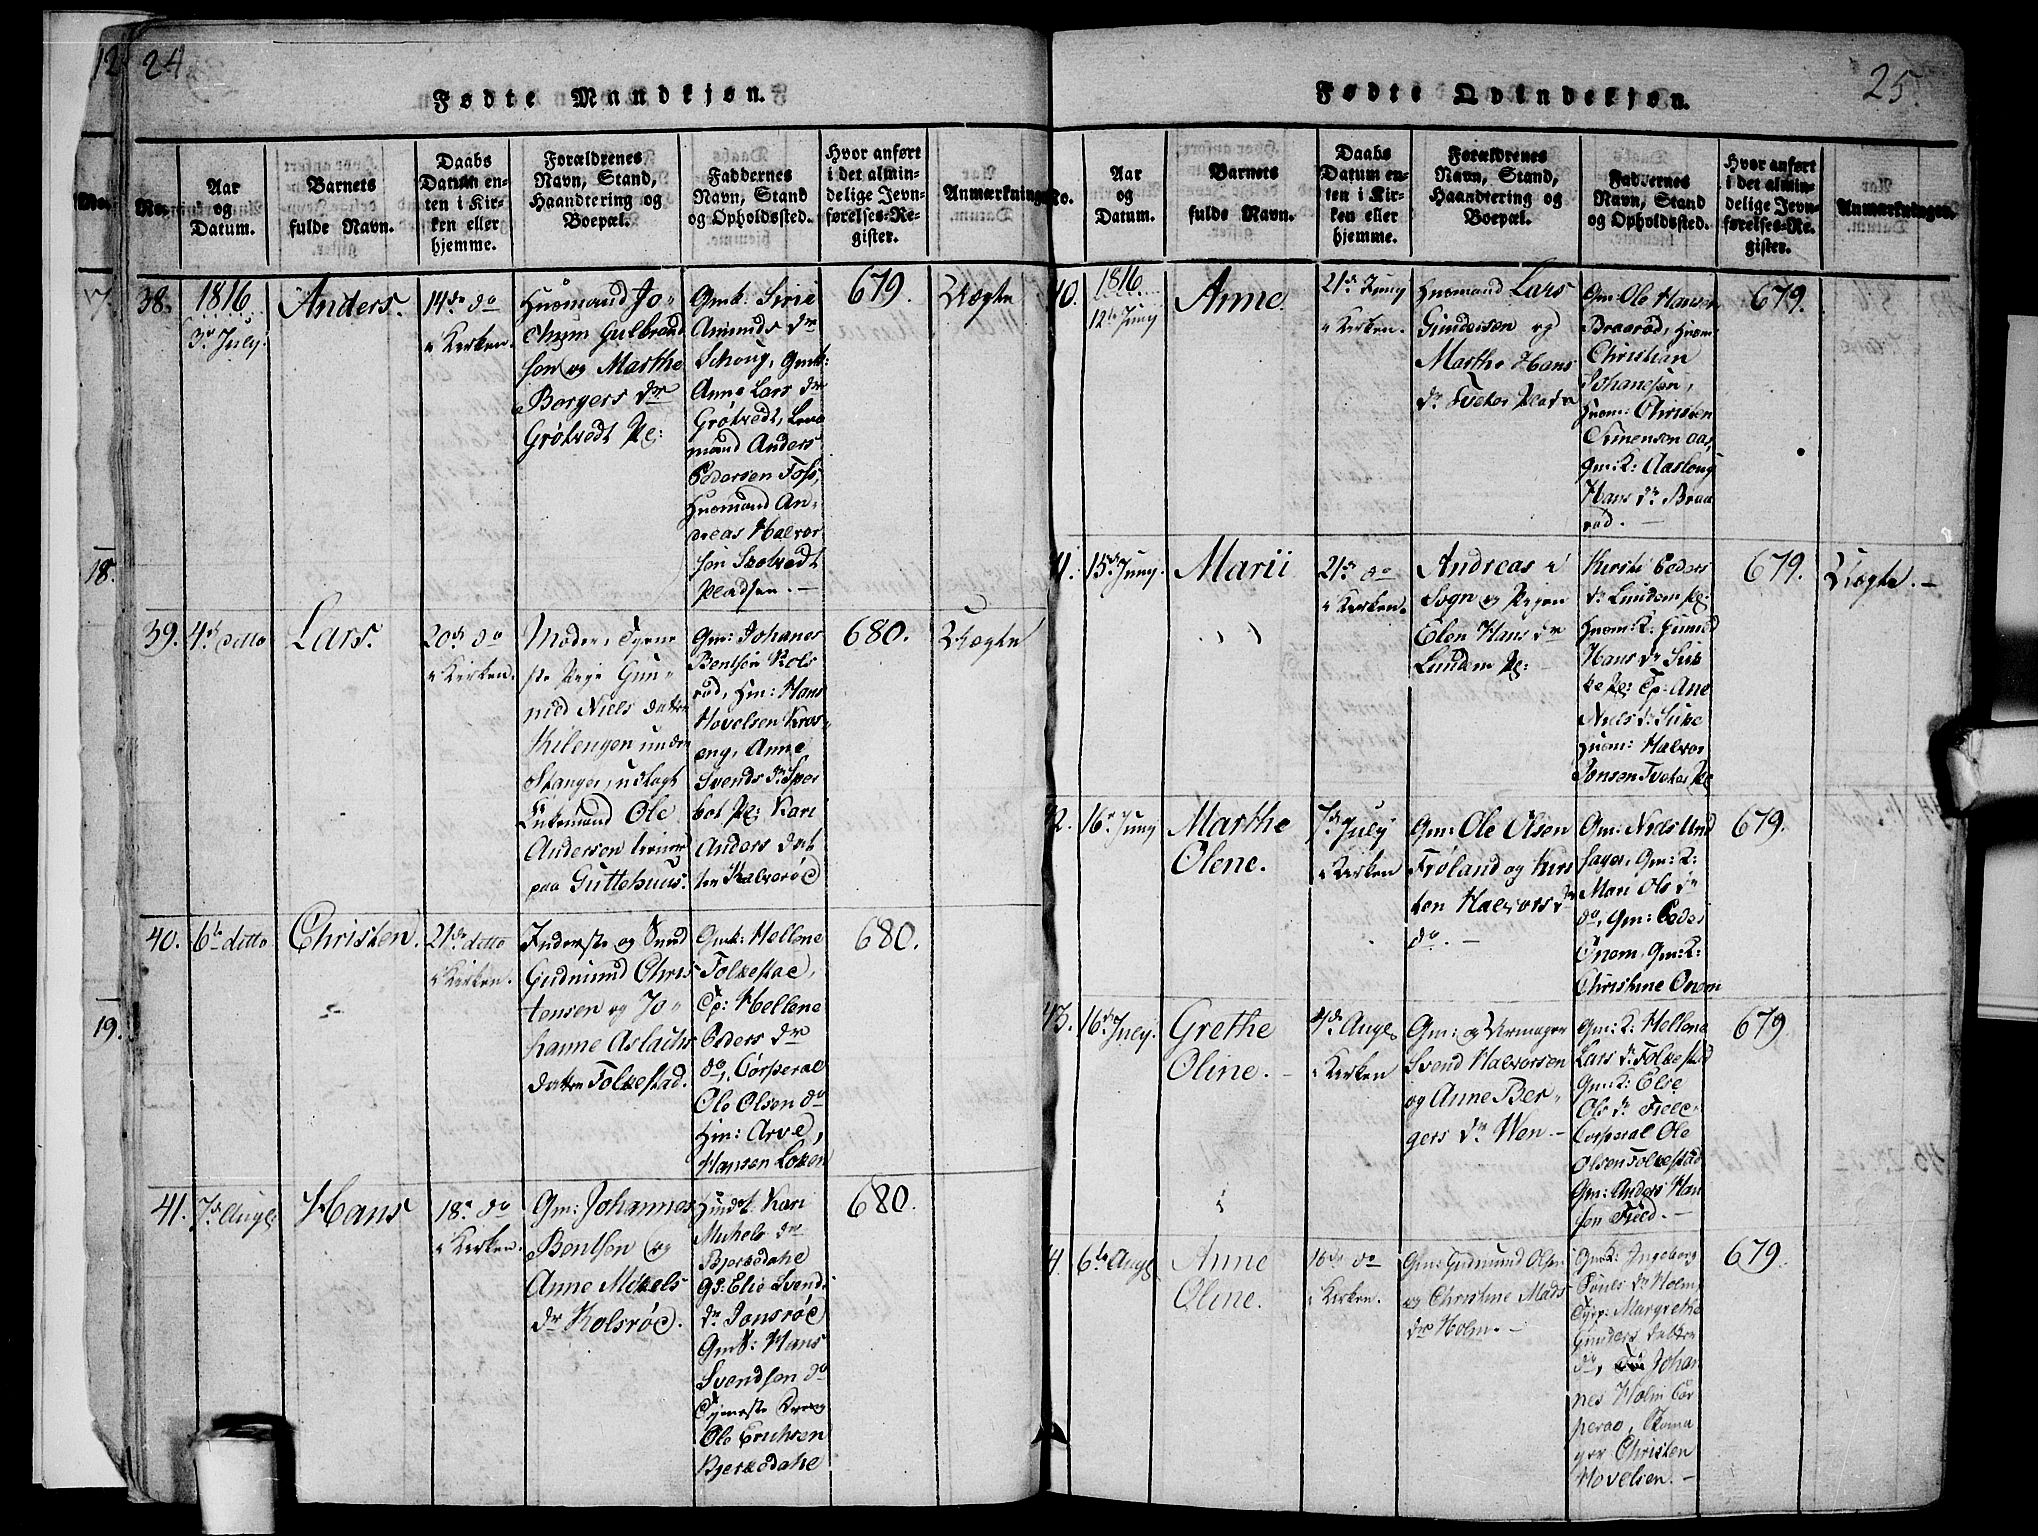 24.
Fødte Mandkjøn.
No.
Aar
og
Datum.
Barnets
fulde Navn.
Daabs
Datum en-
ten i Kir-
ken eller
hjemme.
Forældrenes
Navn, Stand,
Haandtering og
Boepæl.
Faddernes
Navn, Stand
og Opholdssted.
Hvor anført
i det almin-
delige Jevn-
førelses-Re-
gister.
Anmærkninger
38.
1816
3de July.
Anders.
14de do
i Kirken.
Huusmand Jo-
chum Gulbrand
søn og Marthe
Borgers dr
Grøtvedt Pl:
Gmk: Sirie
Amunds dr
Schoug, Gmk:
Anne Lars dr
Grøtvedt,
mand Anders
Pedersen Foss,
Huusmand An-
dreas Halvor
søn
Pladsen. —
679.
Uægte
39.
4de ditto
Lars.
20de do
i Kirken.
Moder, Tjene
ste Pige Gun-
nild Niels datter
Kilengen under
Stanger, udlagt
Ole
Andersen
paa Guttehuus.
Gm: Johanes
Bentsen Kols
rød, Hm: Hans
Hovelsen Kros-
eng, Anne
Svends dr
Pl: Kari
Anders dat
ter Kalverød
680.
Uægte
40.
6te ditto
Christen.
21de ditto
i Kirken.
Inderste og Smed
Gudmund Chris
tensen og Jo-
hanne Aslachs
datter Folkestad.
Gmk: Hellene
Folkestad,
Tp: Hellene
Peders dr
do, Corperal
Ole Olsen do
Hm: Arve,
Hansen Løken
680.
41.
7de Augs
Hans
18de do
i Kirken.
Gm: Johannes
Bentsen og
Anne Mikels
dr Kolsrød.
Kari
Michels dr
Bjerkedahl
Elie Svends
dr Jonsrød
Gmk: Hans
Svendsen do
Tjeneste
Ole Erichsen
Bjerkedahl
680.
25.
Fødte Qvindekjøn.
No.
Aar
og
Datum.
Barnets
fulde Navn.
Daabs
Datum en-
ten i Kir-
ken eller
hjemme.
Forældrenes
Navn, Stand,
Haandtering og
Boepæl.
Faddernes
Navn, Stand
og Opholdssted.
Hvor anført
i det almin-
delige Jevn-
førelses-Re-
gister.
Anmærkninger.
40.
1816
12te Juny
Anne
21de Juny
i Kirken.
Huusmand Lars
Gundersen og
Marthe Hans
dr Tveter Pladsen
Gm: Ole Hansen
Braarød, Huusm:
Christian
Johansen,
Huusm: Christen
Simenson Aas,
Gm:K: Aasloug
Hans dr Braa
rød. —
679.
41.
15de Juny.
Marii
21de do
i Kirken.
Andreas i
Sogn og Pigen
Elen Hans dr
Lundem Pl:
Kirsti Peders
dr Lundem Pl:
Huusm:K: Gunild
Hans dr
Pl: Tp: Ane
Niels dr
Huusm: Halvor
Jonsen Tveter Pl
679.
Uægte. —
42.
16de Juny
Marthe
Olene.
7de July
i Kirken
Gm: Ole Olsen
Frøland og Kirs
ten Halvors dr
do. —
Gm: Niels Und
Gm:K:
Mari Ols dr
do, Gm: Peder
Onem, Gm:K:
Christine Onem
679.
43.
16de July.
Grethe
Oline.
4de Augs
i Kirken
Gm: og Urmager
Svend Halvorsen
og Anne Ber-
gers dr Wen. —
Gm:K: Hellene
Lars dr Folkestad
Gm:K: Else
Ols dr Field
Corperal Ole
Olsen Folkestad
Gm: Anders Han
sen Field. —
679
44.
6te Augs
Anne
Oline.
16de do
i Kirken.
Gm: Gudmund Olsen
og Christine Mads
dr Holm. —
Gm:K: Ingeborg
Pouls dr Holm,
Margrethe
Gunders datter
do, Johan
nes Holm Cor
peral, Skoma
ger Christen
Hovelsen. —
679.
12
17.
18.
19.